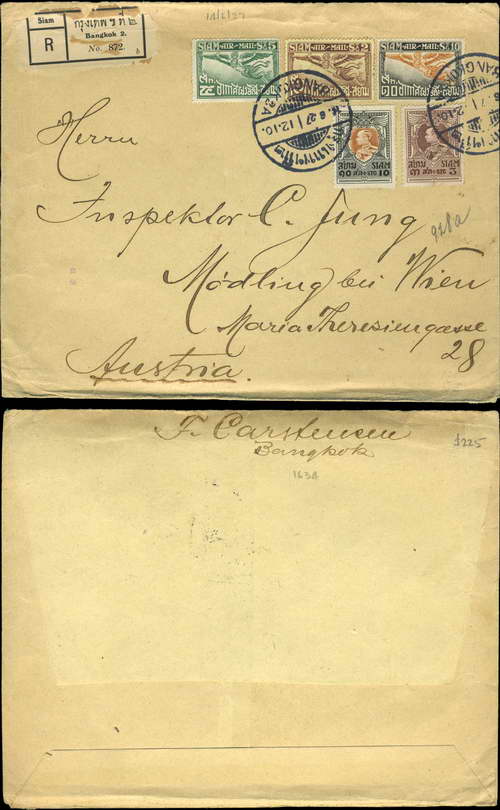 14/6/27
Siam
R
กรุงเทพฯ ที่ ๒
Bangkok 2.
No. 872.
SIAM-AIR-MAIL-S.5
SIAM-AIR-MAIL-S.2
SIAM-AIR-MAIL-S.10
BANGKOK
6. 27 | 12-10.
สยาม SIAM
๑๐ 10
สยาม SIAM
๓ 3
Herrn
Inspektor C. Jung
928a
Mödling bei Wien
Maria Theresiengasse
28
Austria.
F. Carstensen
Bangkok
$225
163A